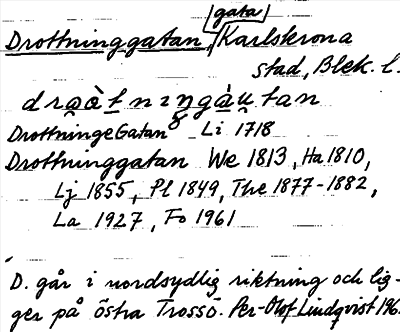 gata
Drottninggatan, Karlskrona
stad, Blek. l.
drɷàtnıŋgàɥtan
DrottningeGatan 8 Li 1718
Drottninggatan We 1813, Ha 1810,
Lj 1855, Pl 1849, The 1877-1882,
La 1927, Fo 1961
D. går i nordsydlig riktning och lig-
ger på östra Trossö. Per-Olof Lindqvist 196